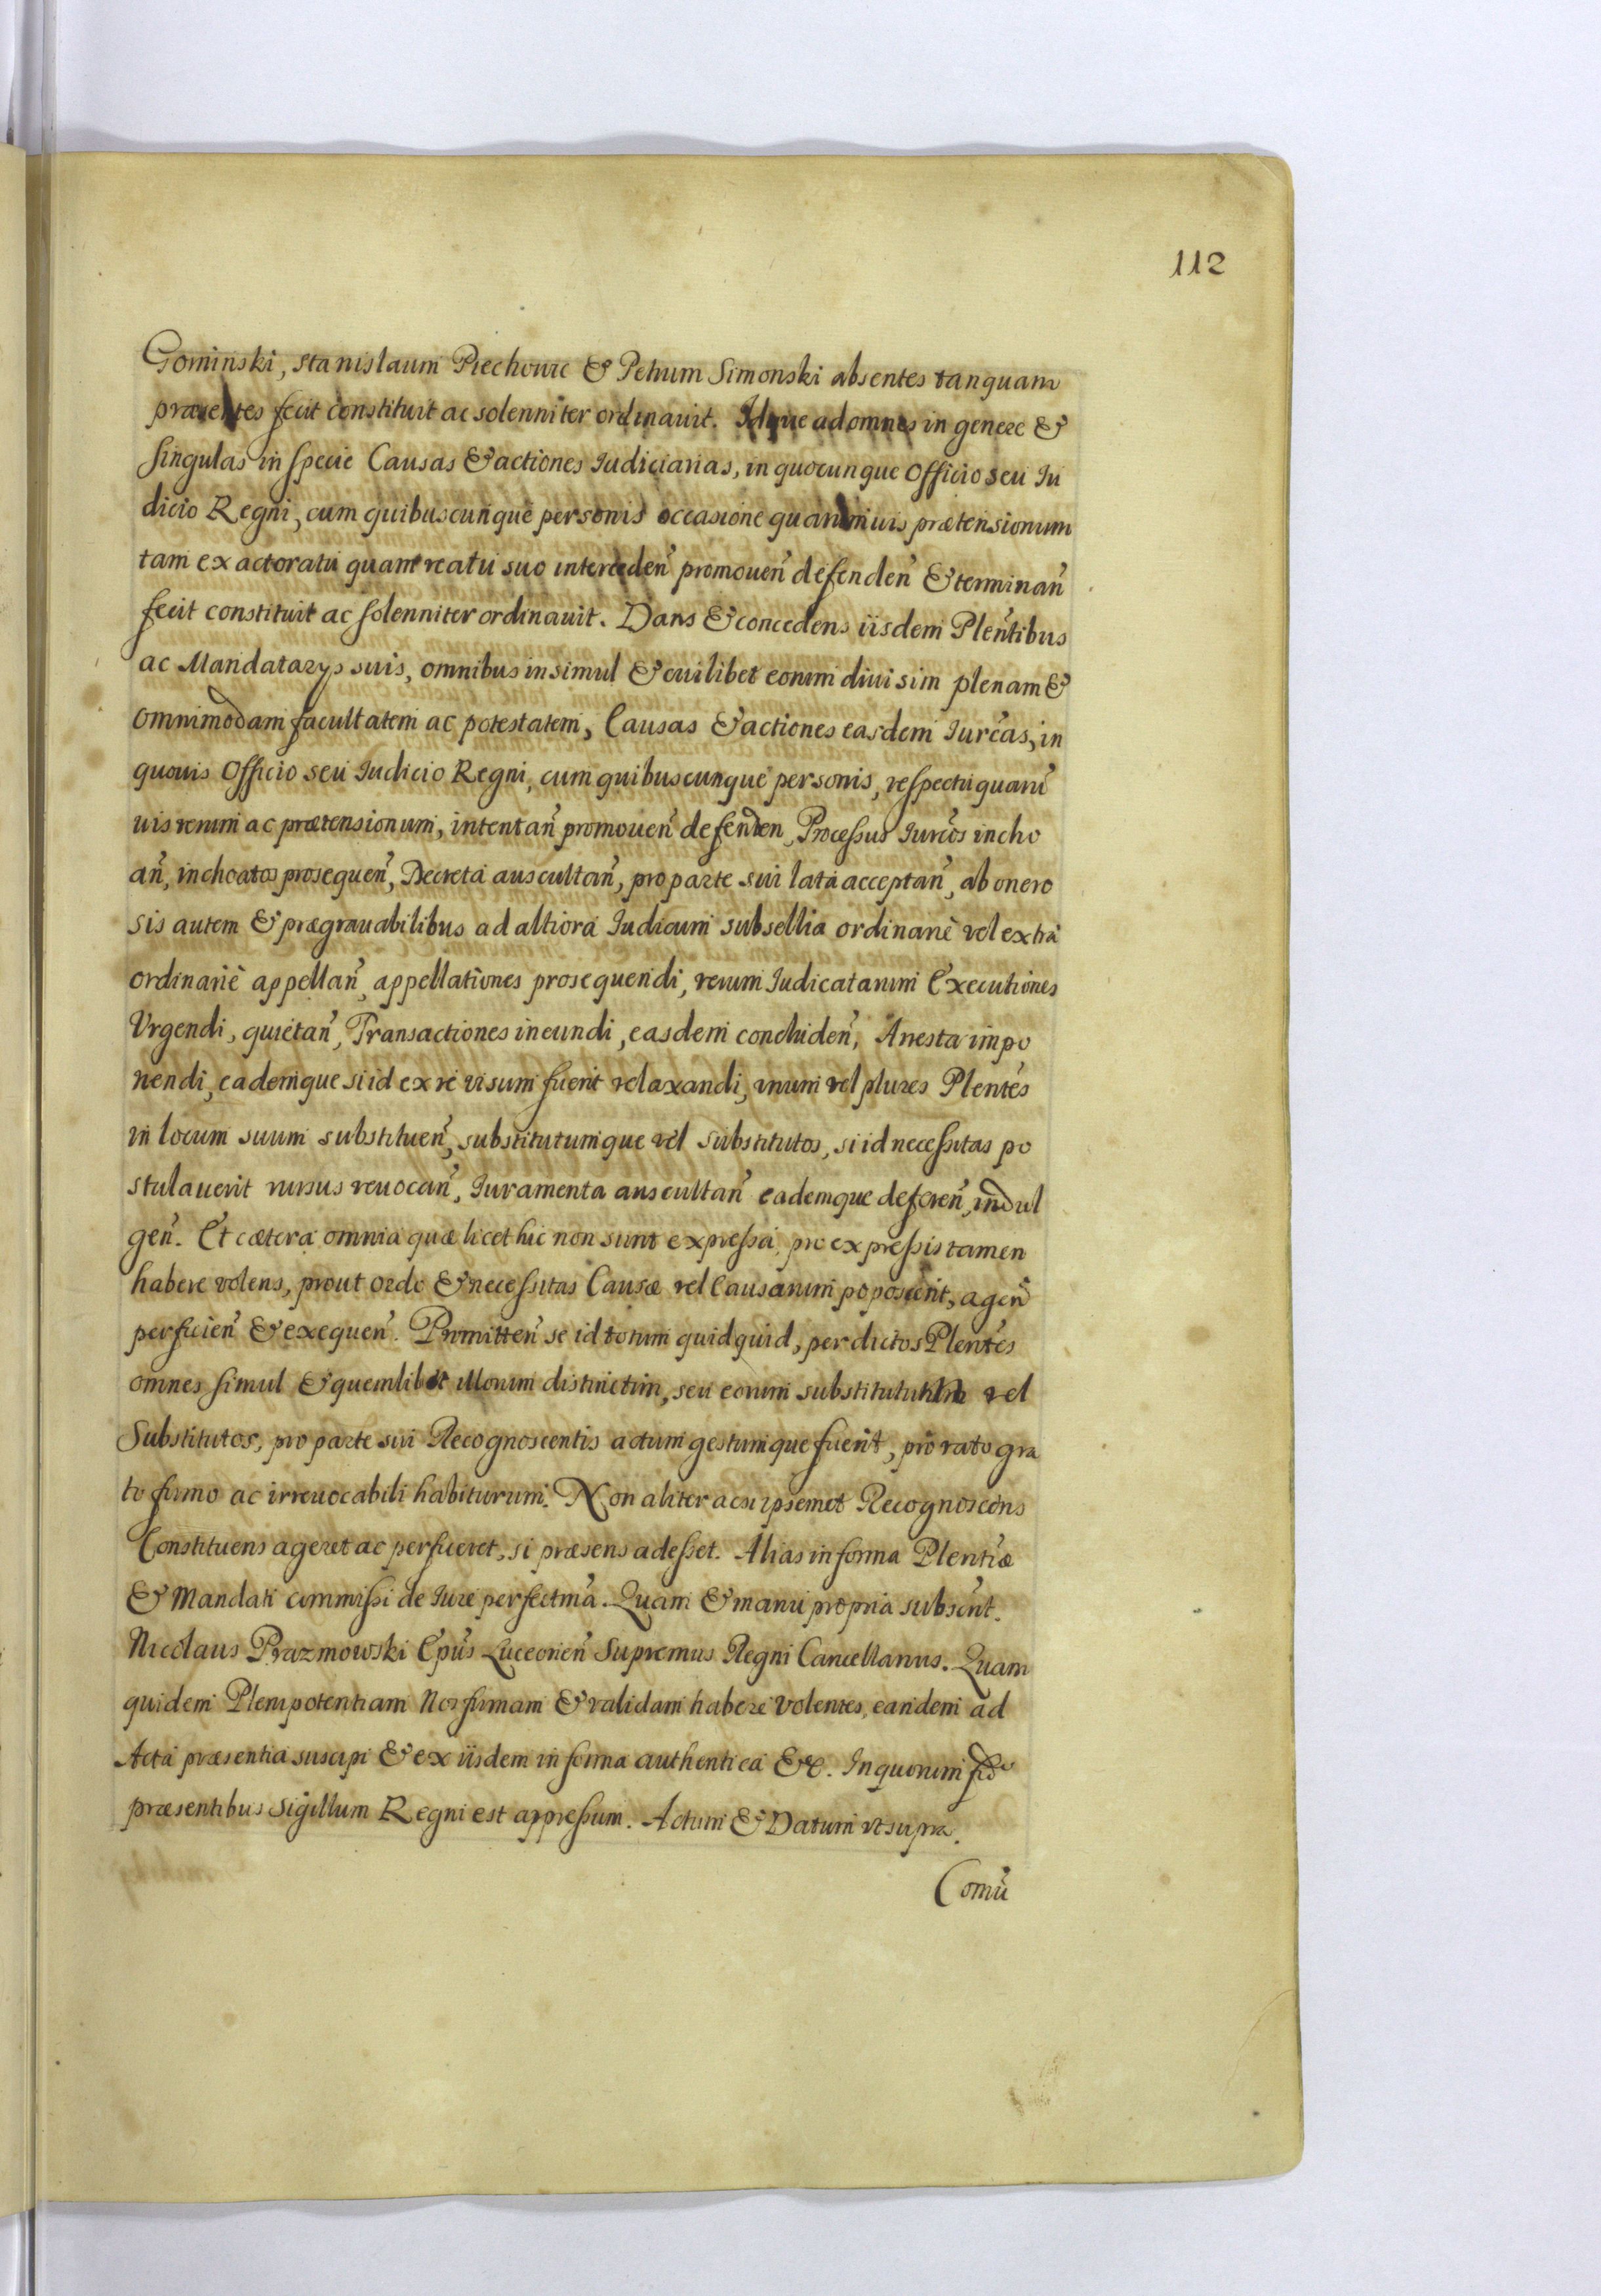 112
Gominski, Stanislaum Piechowic & Petrum Simonski absentes tanquam
præsentes fecit constituit ac solenniter ordinauit. Idque ad omnes in genere &
singulas in specie Causas & actiones Iudiciarias, in quocunque Officio seu Iu
dicio Regni, cum quibuscunque personis occasione quarumuis prætensionum
tam ex actoratu quam reatu suo interceden̄ promouen̄ defenden̄ & terminan̄
fecit constituit ac solenniter ordinauit. Dans & concedens iisdem Plen̄tibus
ac Mandatarys suis, omnibus insimul & cuilibet eorum diuisim plenam &
omnimodam facultatem ac potestatem, Causas & actiones easdem Iurc̄as, in
quouis Officio seu Iudicio Regni, cum quibuscunque personis, respectu quarū
uis rerum ac prætensionum, intentan̄ promouen̄ defenden, Processus Iurc̄os incho
an̄, inchoatos prosequen̄, Decreta auscultan̄, pro parte sui lata acceptan̄, ab onero
sis autem & prægrauabilibus ad altiora Iudicum subsellia ordinariè vel extra
ordinariè appellan̄, appellationes prosequendi, rerum Iudicatarum Executiones
Vrgendi, quietan̄, Transactiones ineundi, easdem concluden̄, Arresta impo
nendi, eademque si id ex re visum fuerit relaxandi, vnum vel plures Plen̄tes
in locum suum substituen̄, substitutumque vel substitutos, si id necessitas po
stulauerit rursus reuocan̄, Iuramenta auscultan̄ eademque deferen̄, indul
gen̄. Et cætera omnia quæ licet hic non sunt expressa, pro expressis tamen
habere volens, prout ordo & necessitas Causæ vel Causarum poposcerit, agen̄
perficien̄ & exequen̄. Promitten̄ se id totum quidquid, per dictos Plen̄tes
omnes simul & quemlibet illorum distinctim, seu eorum substitutum vel
Substitutos, pro parte sui Recognoscentis actum gestumque fuerit, pro rato gra
to firmo ac irreuocabili habiturum. Non aliter ac si ipsemet Recognoscens
Constituens ageret ac perficeret, si præsens adesset. Alias in forma Plen̄tiæ
& Mandati commissi de Iure perfectm̄a. Quam & manu propria subscr̄nt.
Nicolaus Prazmowski Ep̄us Luceorien̄ Supremus Regni Cancellarius. Quam
quidem Plenipotentiam Nos firmam & validam habere Volentes, eandem ad
Acta præsentia suscipi & ex iisdem in forma authentica &c. In quorum fid̄
præsentibus Sigillum Regni est appressum. Actum & Datum vt supra.
Comū